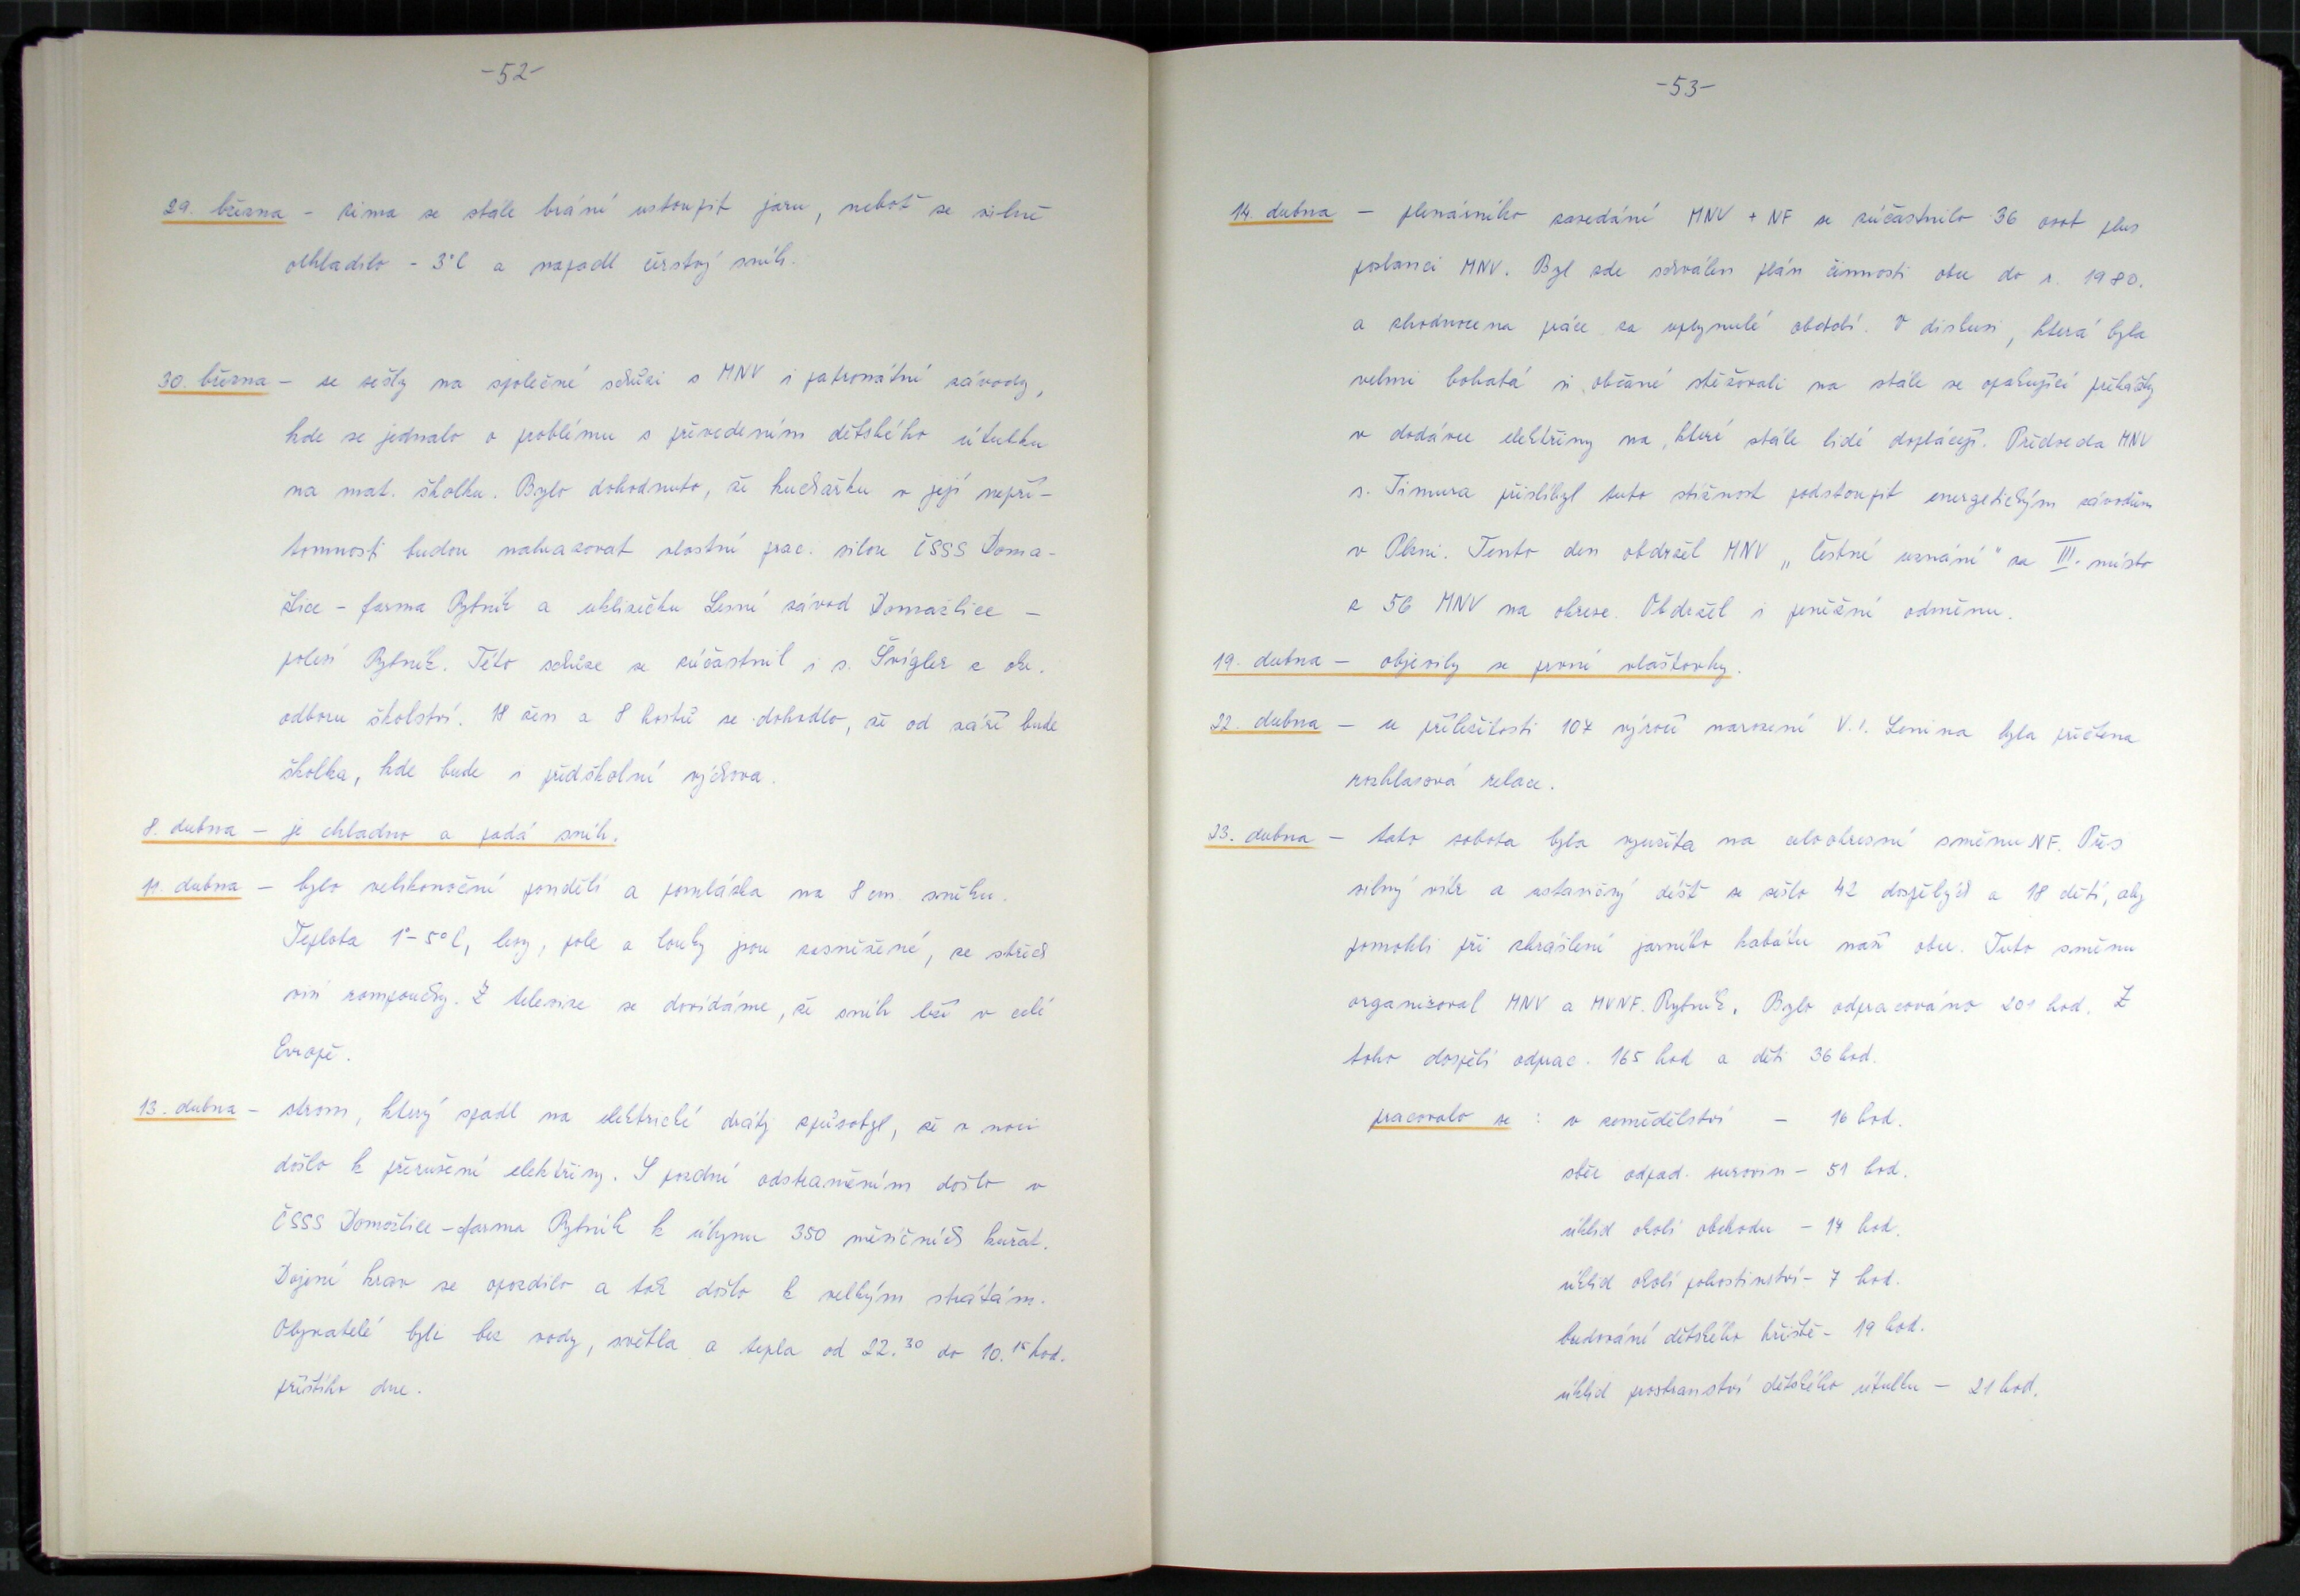 -52-
29. března - zima se stále brání ustoupit jaru, neboť se silně
ochladilo - 3°C a napadl čerstvý sníh.
30. března - se sešly na společné schůzi s MNV i patronátní závody,
kde se jednalo o problému s převedením dětského útulku
na mat. školku. Bylo dohodnuto, že kuchařku v její nepří-
tomnosti budou nahrazovat vlastní prac. silou ČSSS Doma-
žlice - farma Rybník a uklizečku Lesní závod Domažlice -
polesí Rybník. Této schůze se zúčastnil i s. Švígler z ok.
odboru školství. 18 žen a 8 hostů se dohodlo, že od září bude
školka, kde bude i předškolní výchova.
8. dubna - je chladno a padá sníh.
11. dubna - bylo velikonoční pondělí a pomlázka na 8 cm sněhu.
Teplota 1°-5°C, lesy, pole a louky jsou zasněžené, ze střech
visí rampouchy. Z televize se dovídáme, že sníh leží v celé
Evropě.
13. dubna - strom, který spadl na elektrické dráty způsobyl, že v noci
došlo k přerušení elektřiny. S pozdní odstraněním došlo v
ČSSS Domažlice - farma Rybník k úhynu 350 měsíčních kuřat.
Dojení krav se opozdilo a tak došlo k velkým ztrátám.
Obyvatelé byli bez vody, světla a tepla od 22.30 do 10.15 hod.
příštího dne.
-53-
14. dubna - plenárního zasedání MNV + NF se zúčastnilo 36 osob plus
poslanci MNV. Byl zde schválen plán činnosti obce do r. 1980.
a zhodnocena práce za uplynulé období. V diskusi, která byla
velmi bohatá si občané stěžovali na stále se opakující překážky
v dodávce elektřiny na, které stále lidé doplácejí. Předseda MNV
s. Timura přislíbyl tuto stížnost podstoupit energetickým závodům
v Plzni. Tento den obdržel MNV „čestné uznání" za III. místo
z 56 MNV na okrese. Obdržel i peněžní odměnu.
19. dubna - objevily se první vlaštovky.
22. dubna - u příležitosti 107 výročí narození V.I. Lenina byla přečtena
rozhlasová relace.
23. dubna - tato sobota byla využita na celookresní směnu NF. Přes
silný vítr a ustavičný déšť se sešlo 42 dospělých a 18 dětí, aby
pomohli při zkrášlení jarního kabátu naší obce. Tuto směnu
organizoval MNV a MVNF. Rybník. Bylo odpracováno 201 hod. Z
toho dospělí odprac. 165 hod a děti 36 hod.
pracovalo se : v zemědělství - 16 hod.
sběr odpad. surovin - 51 hod.
úklid okolí obchodu - 14 hod.
úklid okolí pohostinství - 7 hod.
budování dětského hřiště - 19 hod.
úklid prostranství dětského útulku - 21 hod.